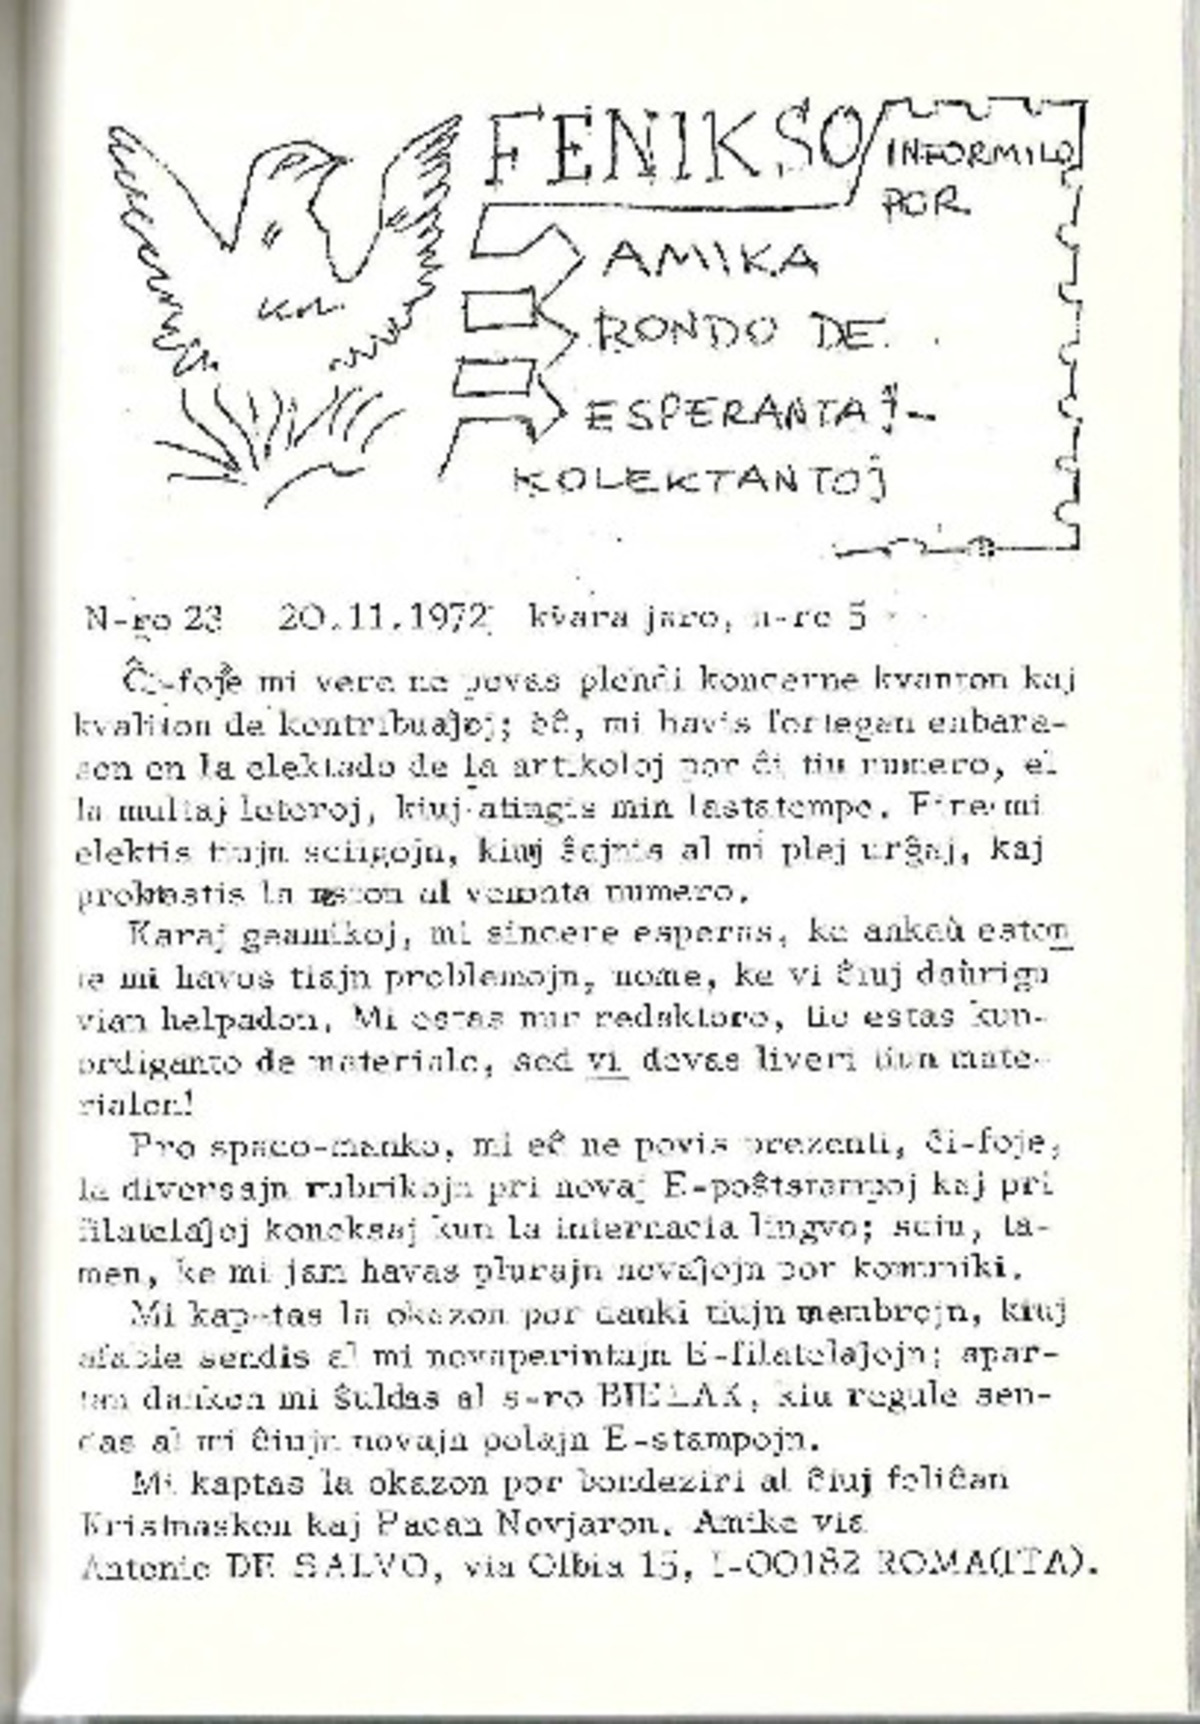 FENIKSO
INFORMILO
POR
AMIKA
RONDO DE
ESPERANTAĴ-
KOLEKTANTOJ
N-ro 23 20.11.1972 kvara jaro, n-ro 5
Ĉi-foje mi vere ne povas plendi koncerne kvanton kaj
kvaliton de kontribuaĵoj; eĉ, mi havis fortegan enbara-
son en la elektado de la artikoloj por ĉi tiu numero, el
la multaj leteroj, kiuj atingis min lastatempe. Fine mi
elektis tiujn sciigojn, kiuj ŝajnis al mi plej urĝaj, kaj
prokrastis la reston al venonta numero.
Karaj geamikoj, mi sincere esperas, ke ankaŭ eston
te mi havos tiajn problemojn, nome, ke vi ĉiuj daŭrigu
vian helpadon. Mi estas nur redaktoro, tio estas kun-
ordiganto de materialo, sed vi devas liveri tiun mate-
rialon!
Pro spaco-manko, mi eĉ ne povis prezenti, ĉi-foje,
la diversajn rubrikojn pri novaj E-poŝtstampoj kaj pri
filatelaĵoj koneksaj kun la internacia lingvo; sciu, ta-
men, ke mi jam havas plurajn novaĵojn por komuniki.
Mi kaptas la okazon por danki tiujn membrojn, kiuj
afable sendis al mi novaperintajn E-filatelaĵojn; apar-
tan dankon mi ŝuldas al s-ro BIELAK, kiu regule sen-
das al mi ĉiujn novajn polajn E-stampojn.
Mi kaptas la okazon por bondeziri al ĉiuj feliĉan
Kristnaskon kaj Pacan Novjaron. Amike via
Antonio DE SALVO, via Olbia 15, I-00182 ROMA(ITA).